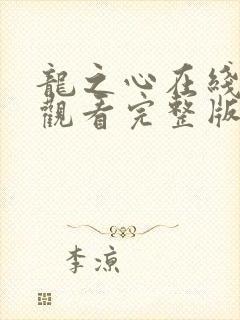 龍之心在綫
觀看完整版
李涼